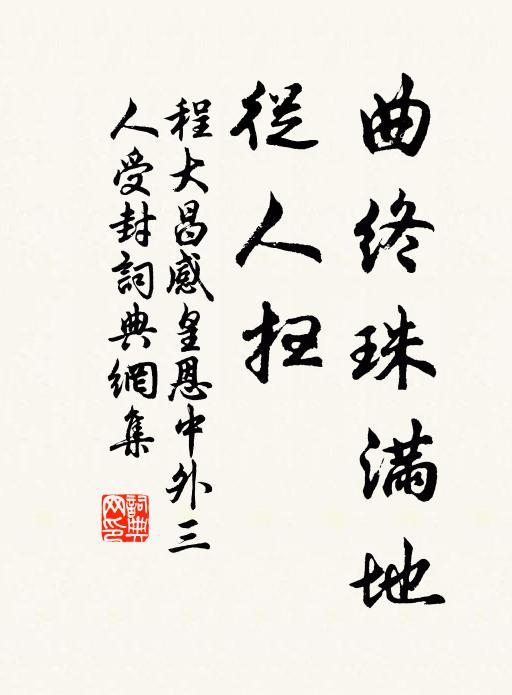 曲终珠满地
從人扫
程大昌感皇恩中外三
人受封詞典網集
詞典
网印